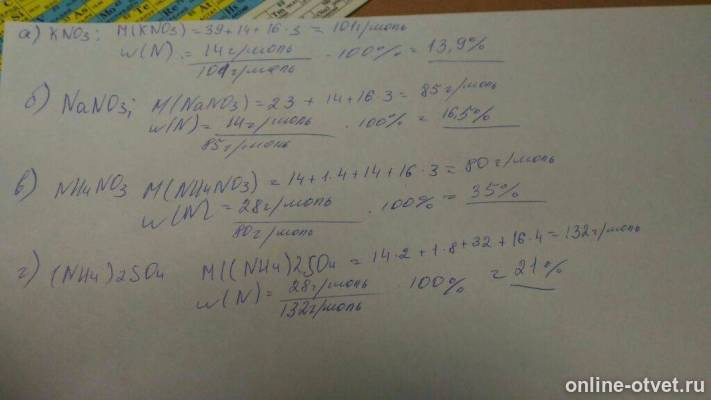 а) KNO3: M(KNO3) = 39+14+16·3 = 101г/моль
w(N) = 14г/моль / 101г/моль · 100% = 13,9%
б) NaNO3; M(NaNO3) = 23 + 14+16·3 = 85г/моль
w(N) = 14г/моль / 85г/моль · 100% = 16,5%
в) NH4NO3 M(NH4NO3) = 14+1·4+14+16·3 = 80г/моль
w(N) = 28г/моль / 80г/моль · 100% = 35%
г) (NH4)2SO4 M((NH4)2SO4 = 14·2+1·8+32+16·4 = 132г/моль
w(N) = 28г/моль / 132г/моль · 100% = 21%
online-otvet.ru